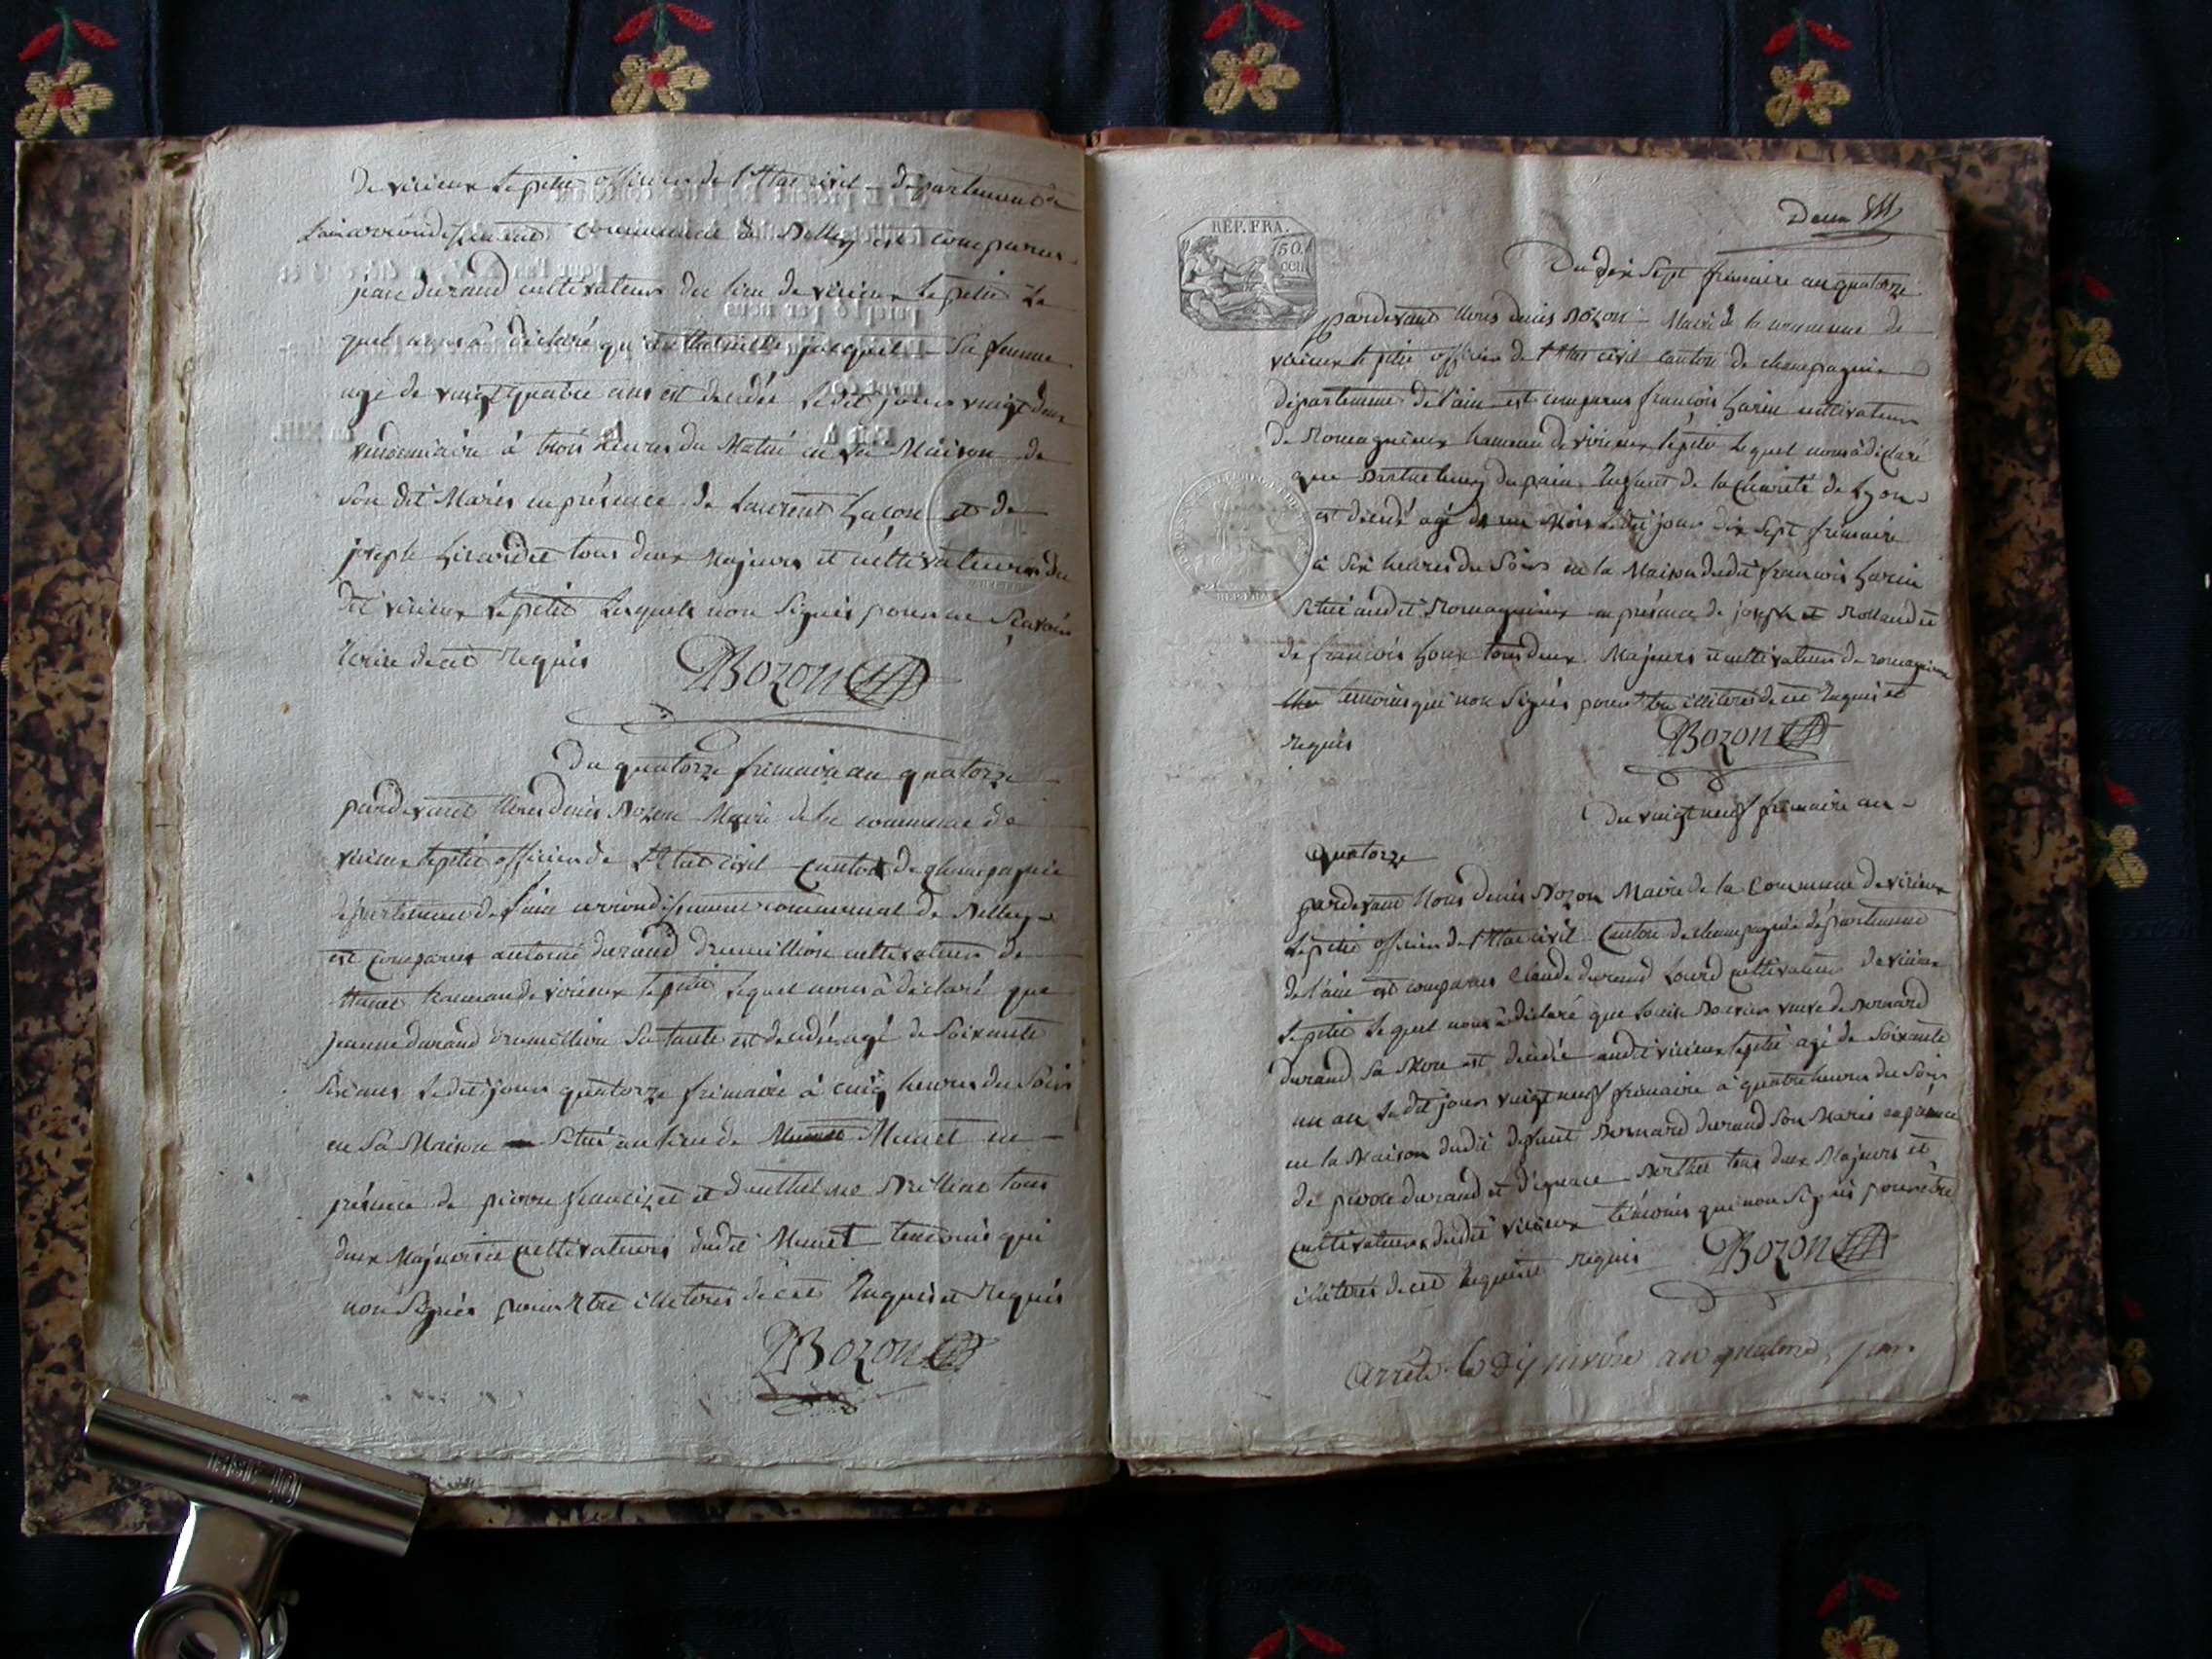 de virieux le petit officier de l'Etat civil departement de
l'ain arrondissement communal de Belley est comparus
jean durand cultivateur du lieu de virieux le petit le
quel nous à déclaré qu' jacquet sa femme
agé de vingt quatre ans est décédée ledit jour vingt deux
vendemiaire à trois heures du Matin en sa Maison de
son dit Maris en présence de Laurent et de
joseph tous deux Majeurs et cultivateurs du
dit virieux le petit lesquels non signés pour ne scavoir
Ecrire de ce requis
DBozon
Du quatorze frimaire an quatorze
pardevant Nous denis Bozon Maire de la commune de
virieux le petit officier de l'Etat civil Canton de champagnie
département de l'ain arrondissement communal de Belley
est comparus antoine durand dremillion cultivateur de
Munet hameau de virieux le petit lequel nous à déclaré que
jeanne durand dremillion sa tante est décédée agé de soixante
six ans ledit jour quatorze frimaire à cinq heures du soir
en sa Maison situé au lieu de Munet en
présence de pierre francizet et d'anthelme tous
deux Majeurs et cultivateurs dudit Munet temoins qui
non signés pour Etre illiteres de ce Enquis et Requis
DBozon
Deux
REP. FRA.
50.
cen
Du dix sept frimaire an quatorze
pardevant Nous denis Bozon Maire de la commune de
virieux le petit officier de l'Etat civil canton de champagnie
département de l'ain est comparus françois cultivateur
de Romagnieux hameau de virieux le petit lequel nous à déclaré
que Barthelemy dupain Enfant de la Charité de Lyon
est décédé agé de un Mois ledit jour dix sept frimaire
à six heures du soir en la Maison dudit francois
situé audit Romagnieux en présence de joseph Rolland et
de francois tous deux Majeurs et cultivateurs de romagnieux
temoins qui non signés pour Etre illiteres de ce Enquis et
requis
DBozon
Du vingt neuf frimaire an
quatorze
pardevant Nous denis Bozon Maire de la Commune de virieux
le petit officier de l'Etat civil Canton de champagnie département
de l'ain est comparus Claude durand cultivateur de virieux
le petit lequel nous à déclaré que Louise veuve de Bernard
durand sa Mere est décédée audit virieux le petit agé de soixante
un an ledit jour vingt neuf frimaire à quatre heures du soir
en la Maison dudit défunt Bernard durand son Maris en présence
de pierre durand et d' Berthet tous deux Majeurs et
cultivateurs dudit virieux témoins qui non signés pour être
illiteres de ce Enquis et requis
DBozon
Arrêté le nivôse an quatorze par